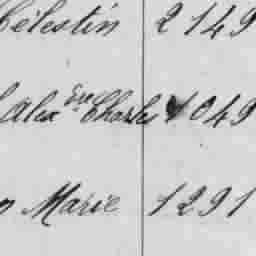 Célestin 2149
Alex Charles 1049
Marie 1291